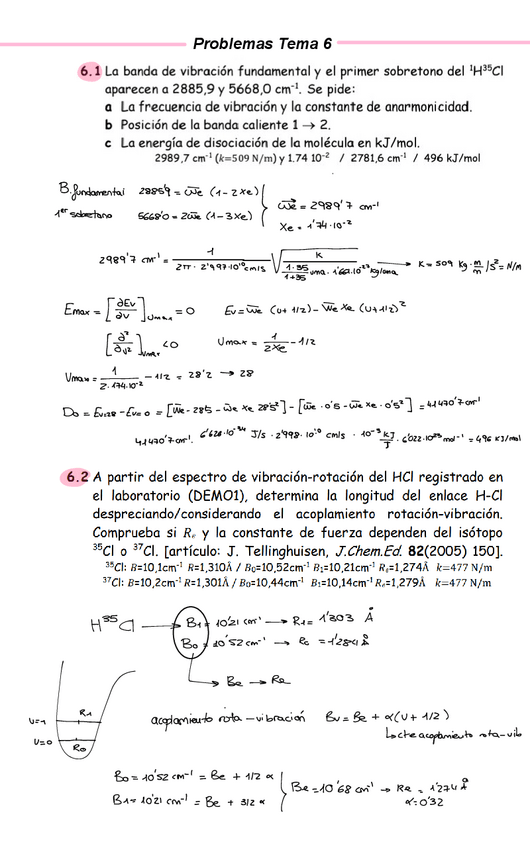 Problemas Tema 6
6.1 La banda de vibración fundamental y el primer sobretono del ¹H³⁵Cl
aparecen a 2885,9 y 5668,0 cm⁻¹. Se pide:
a La frecuencia de vibración y la constante de anarmonicidad.
b Posición de la banda caliente 1 → 2.
c La energía de disociación de la molécula en kJ/mol.
2989,7 cm⁻¹ (k=509 N/m) y 1.74 10⁻² / 2781,6 cm⁻¹ / 496 kJ/mol
B. fundamental 2885'9 = ω̄e (1-2xe)
1er sobretono 5668'0 = 2ω̄e (1-3xe)
ω̄e = 2989'7 cm⁻¹
Xe = 1'74·10⁻²
2989'7 cm⁻¹ = 1 / 2π · 2'997·10¹⁰ cm/s √ K / 1·35/1+35 uma · 1'66·10⁻²⁷ kg/uma → K = 509 kg·m/m /s² = N/m
Emax = [∂Ev/∂v]vmax = 0 Ev = ω̄e (v+1/2) - ω̄e xe (v+1/2)²
[∂²/∂v²]vmax <0 vmax = 1/2xe - 1/2
vmax = 1/2·1'74·10⁻² - 1/2 = 28'2 → 28
Do = Ev=28 - Ev=0 = [ω̄e · 28'5 - ω̄e xe 28'5²] - [ω̄e · 0'5 - ω̄e xe · 0'5²] = 41470'7 cm⁻¹
41470'7 cm⁻¹ · 6'626·10⁻³⁴ J/s · 2'998 · 10¹⁰ cm/s · 10⁻³ kJ/J · 6'022·10²³ mol⁻¹ = 496 kJ/mol
6.2 A partir del espectro de vibración-rotación del HCl registrado en
el laboratorio (DEMO1), determina la longitud del enlace H-Cl
despreciando/considerando el acoplamiento rotación-vibración.
Comprueba si Rₑ y la constante de fuerza dependen del isótopo
³⁵Cl o ³⁷Cl. [artículo: J. Tellinghuisen, J.Chem.Ed. 82(2005) 150].
³⁵Cl: B=10,1cm⁻¹ R=1,310Å / B₀=10,52cm⁻¹ B₁=10,21cm⁻¹ Rₑ=1,274Å k=477 N/m
³⁷Cl: B=10,2cm⁻¹ R=1,301Å / B₀=10,44cm⁻¹ B₁=10,14cm⁻¹ Rₑ=1,279Å k=477 N/m
H³⁵Cl → B₁ = 10'21 cm⁻¹ → R₁ = 1'303 Å
B₀ = 10'52 cm⁻¹ → R₀ = 1'284 Å
Be → Re
v=1 R₁
v=0 R₀
acoplamiento rota-vibración Bv = Be + α(v + 1/2)
↳ cte acoplamiento rota-vib
B₀ = 10'52 cm⁻¹ = Be + 1/2 α
B₁ = 10'21 cm⁻¹ = Be + 3/2 α
Be = 10'68 cm⁻¹ → Re = 1'274 Å
α = 0'32